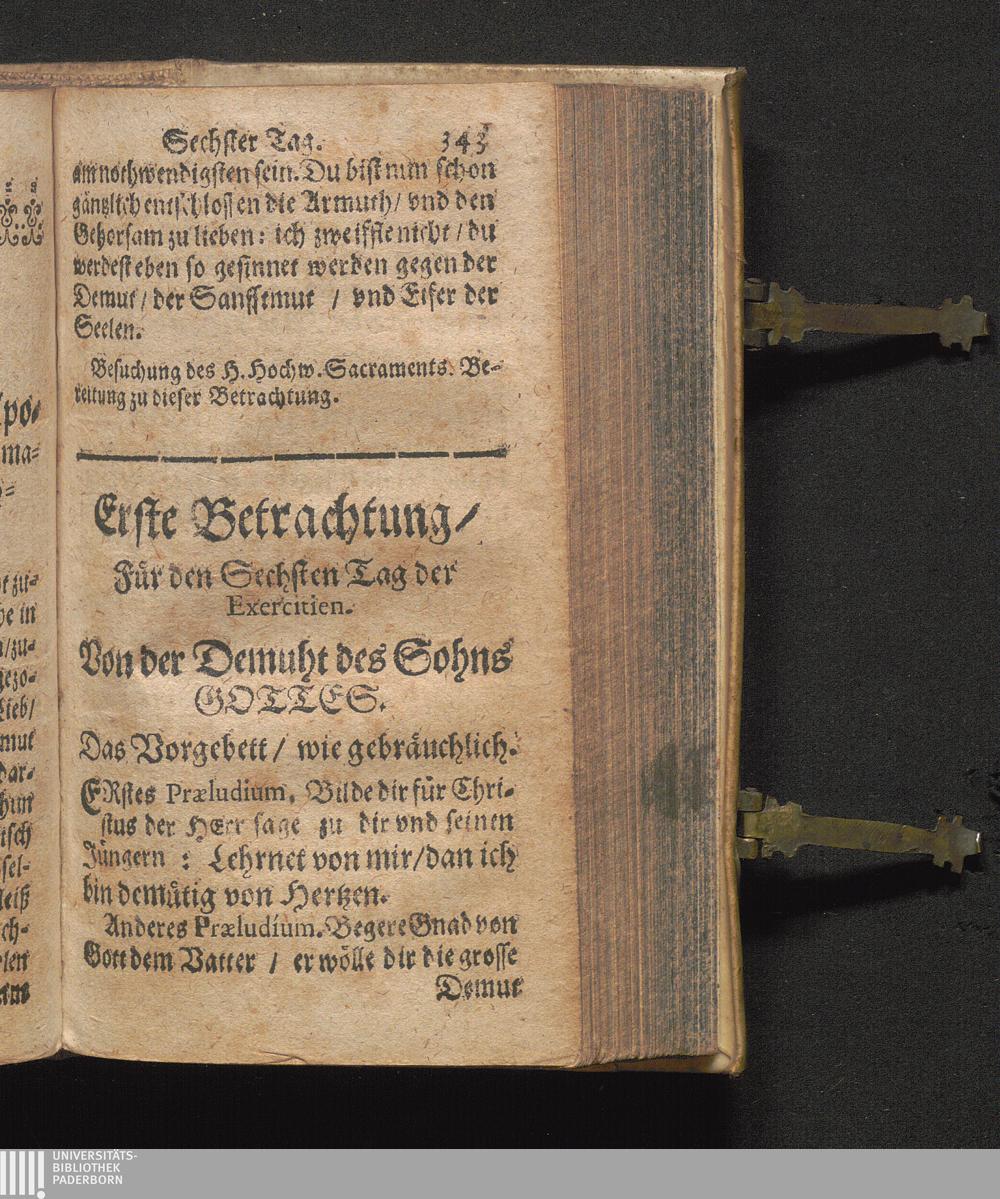 Sechster Tag. 343
am nothwendigsten sein. Du bist nun schon
gäntzlich entschlossen die Armuth/ vnd den
Gehorsam zu lieben: ich zweiffle nicht / du
werdest eben so gesinnet werden gegen der
Demut / der Sanfftmut / vnd Eifer der
Seelen.
Besuchung des H. Hochw. Sacraments. Be-
reitung zu dieser Betrachtung.
Erste Betrachtung/
Für den Sechsten Tag der
Exercitien.
Von der Demuht des Sohns
GOTTES.
Das Vorgebett / wie gebräuchlich.
ERstes Præludium. Bilde dir für Chri-
stus der HErr sage zu dir vnd seinen
Jüngern : Lehrnet von mir/dan ich
bin demütig von Hertzen.
Anderes Præludium. Begere Gnad von
Gott dem Vatter / er wölle dir die grosse
Demut
po-
ma-
t zu-
he in
/zu-
gezo-
Lieb/
mut
dar-
hun
tsch
sel-
leiß
ch-
len
UNIVERSITÄTS-
BIBLIOTHEK
PADERBORN